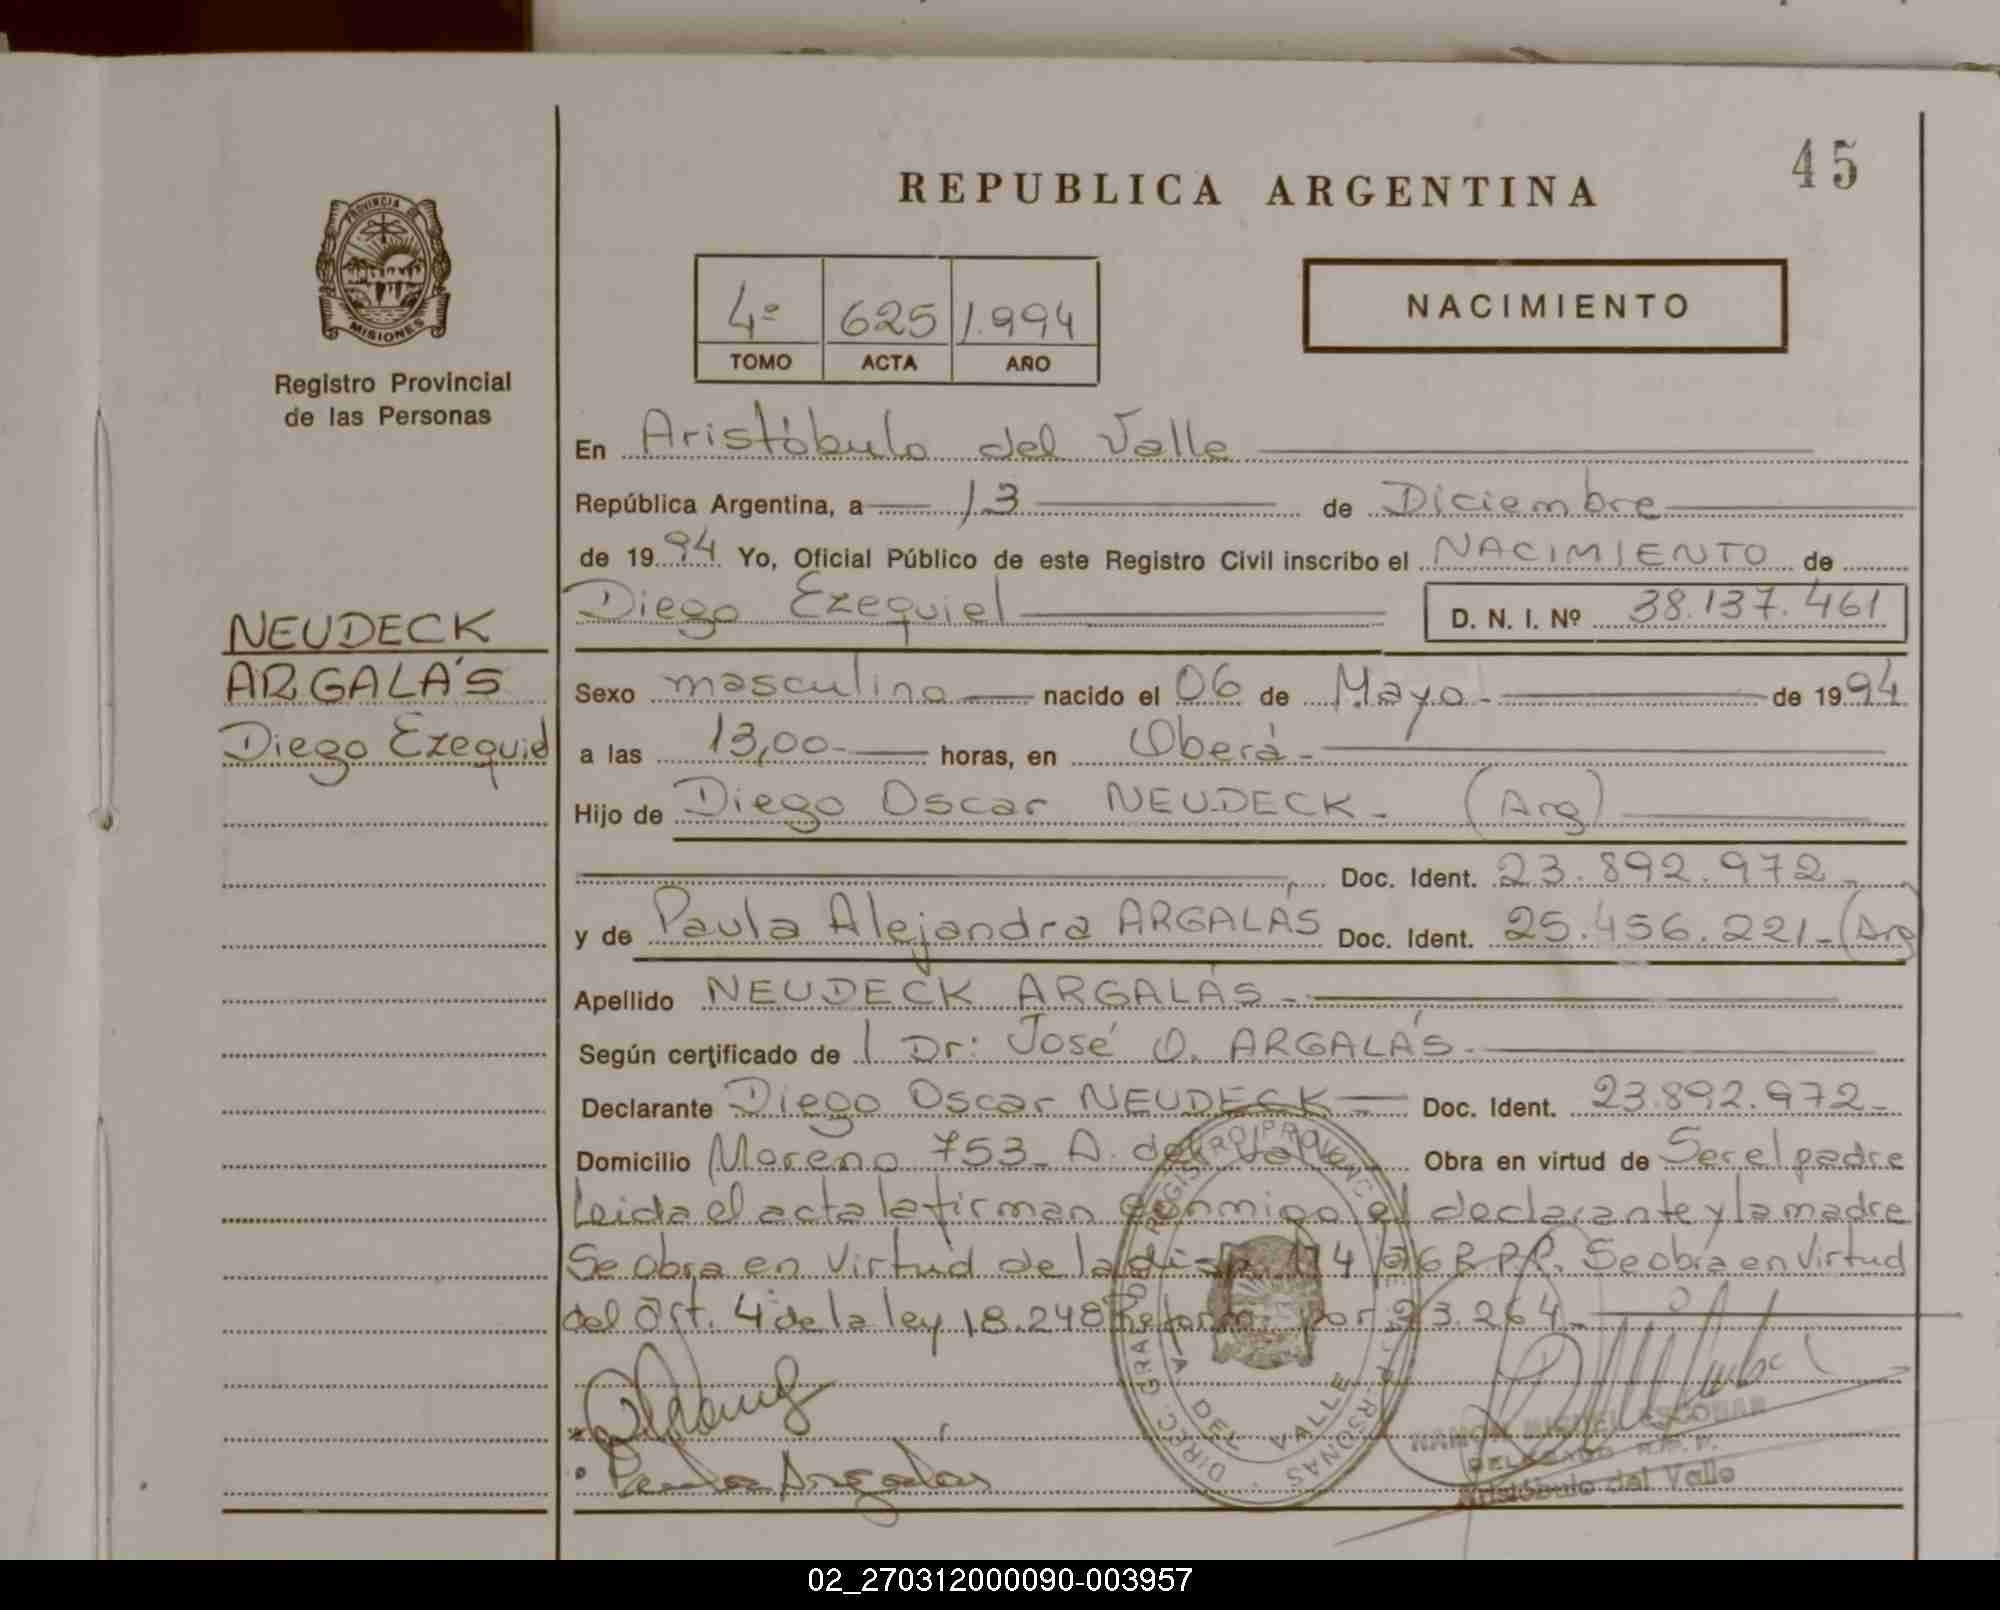 45
REPUBLICA ARGENTINA
PROVINCIA DE
MISIONES
Registro Provincial
de las Personas
4º 625 1.994
TOMO ACTA AÑO
NACIMIENTO
En Aristóbulo del Valle
República Argentina, a 13 de Diciembre
de 1994 Yo, Oficial Público de este Registro Civil inscribo el NACIMIENTO de
Diego Ezequiel D. N. I. Nº 38.137.461
NEUDECK
ARGALÁS
Diego Ezequiel
Sexo masculino nacido el 06 de Mayo - de 1994
a las 13,00- horas, en Oberá -
Hijo de Diego Oscar NEUDECK - (Arg)
Doc. Ident. 23.892.972 -
y de Paula Alejandra ARGALÁS Doc. Ident. 25.456.221 - (Arg)
Apellido NEUDECK ARGALÁS -
Según certificado de Dr: José O. ARGALÁS -
Declarante Diego Oscar NEUDECK - Doc. Ident. 23.892.972 -
Domicilio Moreno 753 - A. del Valle Obra en virtud de Ser el padre
Leida el acta la firman conmigo el declarante y la madre
Se obra en virtud de la disp. R.P.P. Se obra en virtud
del Art. 4º de la ley 18.248 por 23.264 -
Paula Argalás
DIREC. GRAL. DEL REGISTRO PROVINCIAL DE LAS PERSONAS
DEL VALLE
RAMON MIGUEL ESCOBAR
DELEGADO R.P.P.
Aristóbulo del Valle
02_270312000090-003957